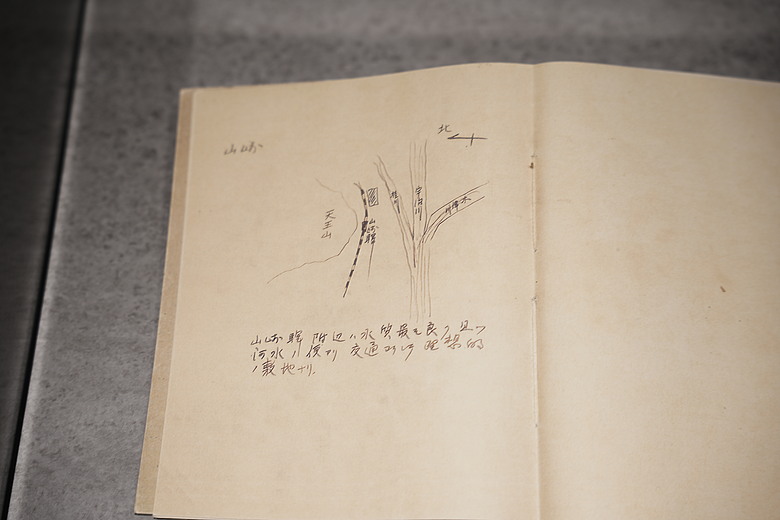 山崎
北
天王山
山崎駅
桂川
宇治川
木津川
山崎駅附近ハ水質最モ良ク且ツ
河水ノ便アリ 交通
理想的
ノ敷地ナリ。